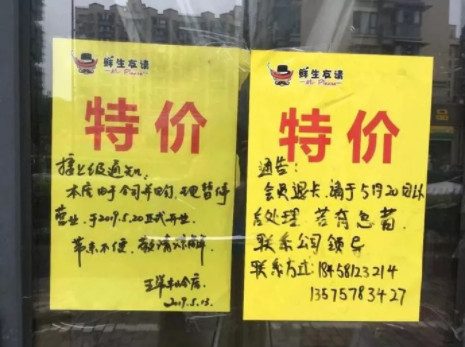 鲜生友请
特价
接上级通知:
本店由于公司并购,现暂停
营业,于2019.5.20正式开业.
带来不便,敬请谅解.
2019.5.13.
鲜生友请
特价
通告:
会员退卡,请于5月20日以
后处理,若有急者,
联系公司领导
联系方式:18458123214
13575783427